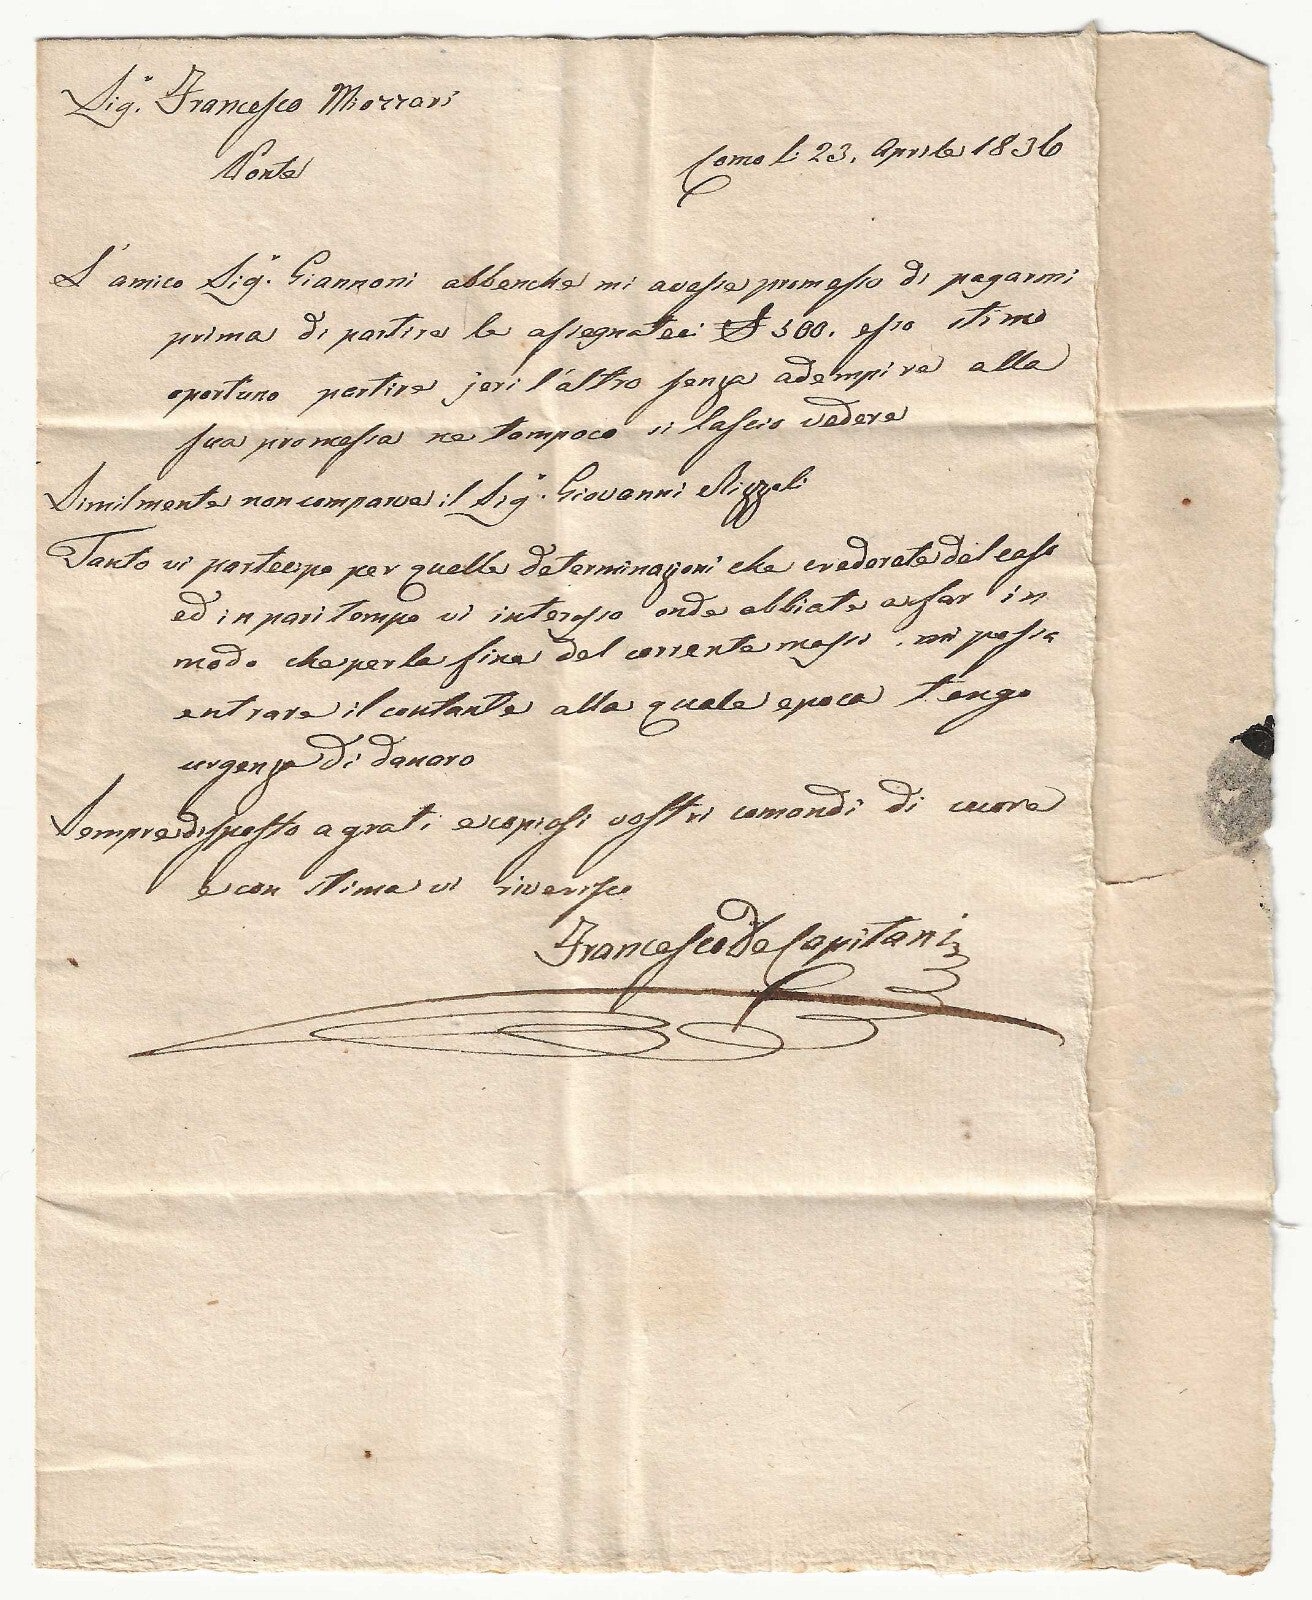 Sig.r Francesco Miozzari
Ponte
Como li 23. Aprile 1836
L'amico Sig.r Giannoni abbenche mi avesse promesso di pagarmi
prima di partire le assegnateci 500. esso stimo
oportuno partire jeri l'altro senza adempire alla
sua promessa ne tampoco si lascio vedere
Similmente non comparve il Sig.r Giovanni Rizzoli
Tanto vi partecipo per quelle determinazioni che crederete del caso
ed in pari tempo vi interesso onde abbiate a far in
modo che per la fine del corrente mese mi possa
entrare il contante alla quale epoca tengo
urgenza di danaro
Sempre disposto a grati e copiosi vostri comandi di cuore
e con stima vi riverisco
Francesco De Capitani